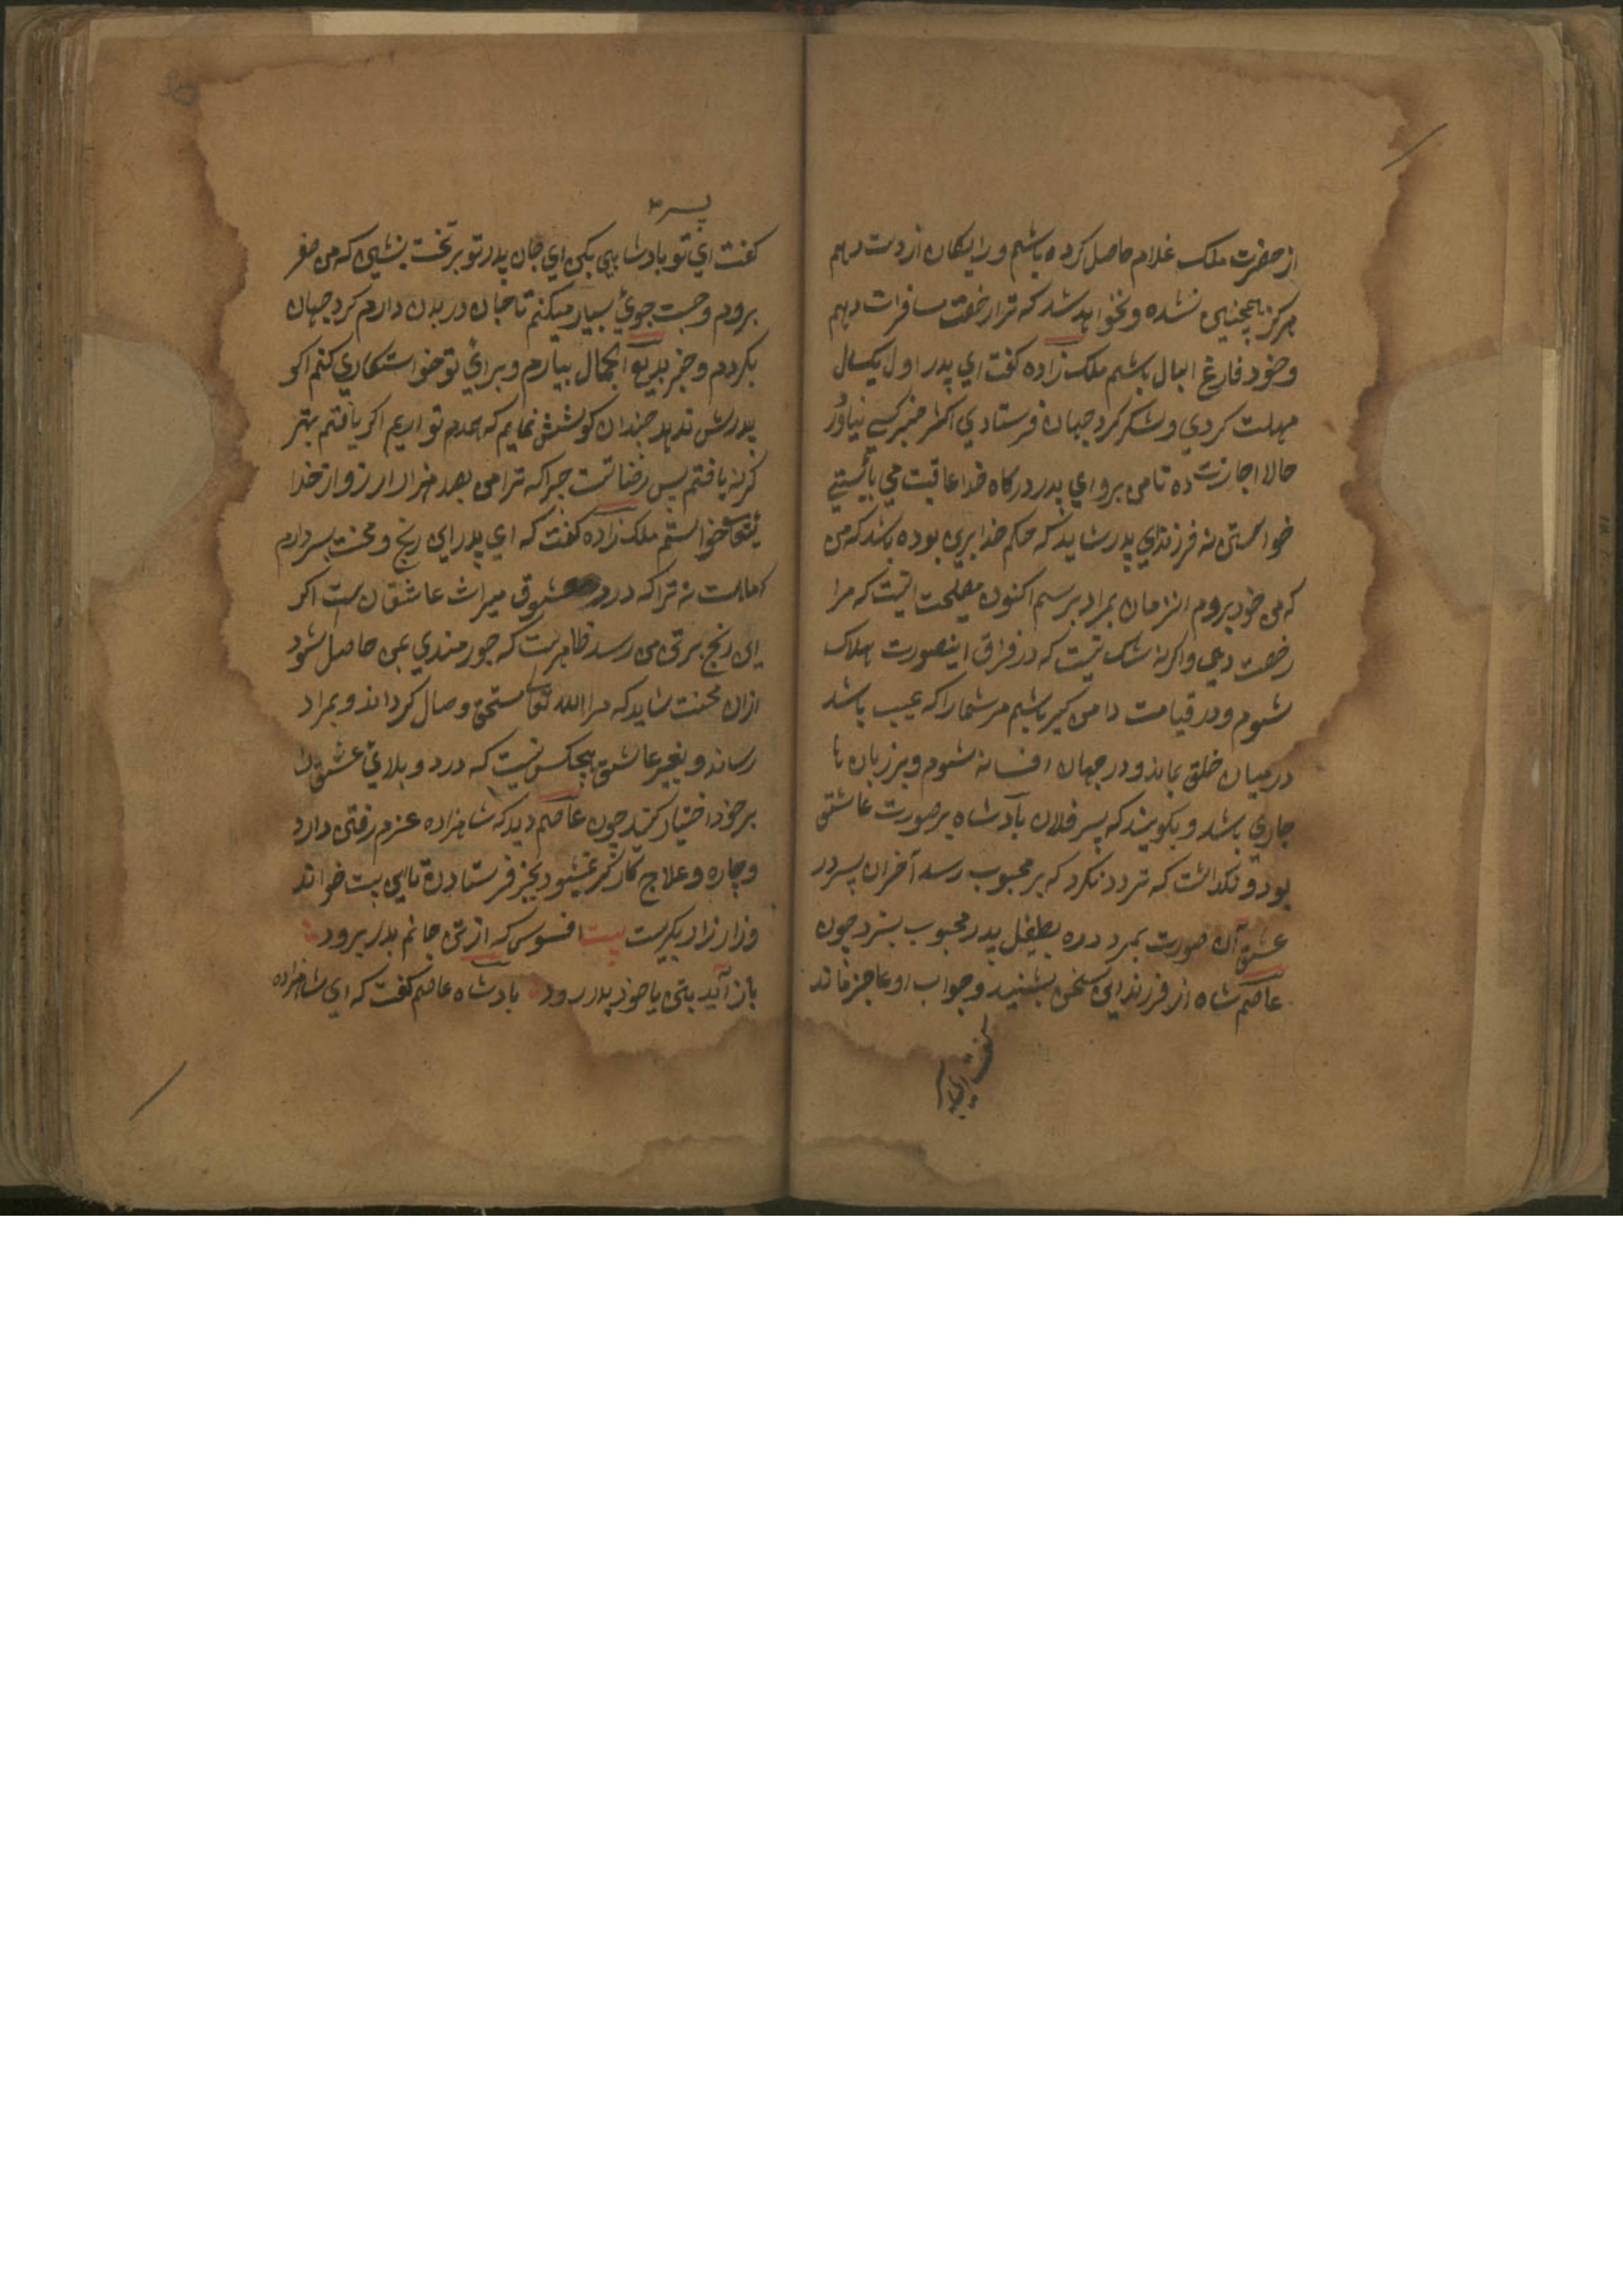 از حضرت ملک غلام حاصل کرده باشم و رایکان از دست دهم
هرکز همچنین نشده و نخواهد شد که ترا رخصت مسافرات دهم
و خود فارغ البال باشم ملک زاده کفت ای پدر اول یکسال
مهلت کردی و شکر کرد جهان فرستادی اکثر خبر کسی نیاورد
حالا اجازت ده تا من بروم ای پدر درکاه خدا عاقبت می بایستی
خواستن نه فرزند ای پدر شاید که حکم خدا برین بوده باشد که من
که من خود بروم انزمان بمراد برسم اکنون مصلحت انیست که مرا
رخصت دهی و اکرنه شک نیست که در فراق اینصورت هلاک
شوم و در قیامت دامن کیر باشم مر شما را که عیب باشد
درمیان خلق بماند و در جهان افسانه شوم و بر زبان ها
جاری باشد و بکویند که پسر فلان بادشاه بر صورت عاشق
بود و نکذاشت که تردد نکرد که بر محبوب رسد آخر ان پسر در
عشق آن صورت بمرد بطفیل پدر محبوب چون
عاصم شاه از فرزند این سخن بشنید و جواب او عاجز ماند
کفت ای
پسر
کفت ای تو بادشاهی بکن ای جان پدر تو بر تخت بنشین که من سفر
بروم و جست جوئ بسیار میکنم تا جان در بدن دارم کرد جهان
بکردم و خبر بدیع الجمال بیارم و برای تو خواستکاری کنم اکر
پدرش ندهد چندان کوشش نمایم که اکر یافتم بهتر
کرنه یافتم پس رضا تست چرا که ترا من بصد هزار ارزو از خدا
خواستم ملک زاده کفت که ای پدر این رنج و محنت بسر دارم
نه ترا که درد معشوق میراث عاشقان ست اکر
این رنج بر تن من رسد ظاهر ست که من حاصل شود
ازان محنت شاید که مرا الله تعالی مستحق وصال کرداند و بمراد
رساند و بغیر عاشق هیچکس نیست که درد و بلای عشق را
بر خود اختیار کند چون عاصم دید که شاهزاده عزم رفتن دارد
و چاره و علاج کارکر نمیشود بجز فرستادن این بیت خواند
و زار زار بکریست بیت افسوس که از تن جانم بدر برود
باز آید بتن یا خود بدر رود بادشاه عاصم کفت که ای شاهزاده